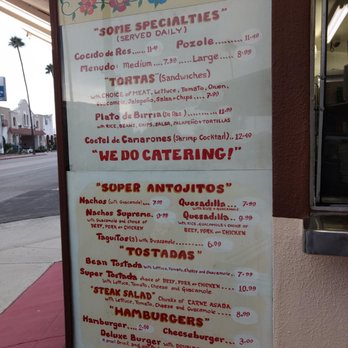 "SOME SPECIALTIES"
(SERVED DAILY)
Cocido de Res.... 11.49 Pozole.... 11.49
Menudo: Medium.... 7.99 Large.... 8.99
"TORTAS" (Sandwiches)
With CHOICE of MEAT, Lettuce, Tomato, Onion,
Jalapeño, Salsa + Chips.... 7.99
Plato de Birria (de Res).... 11.99
With RICE, BEANS, CHIPS, SALSA, JALAPEÑOS + TORTILLAS
Coctel de Camarones (Shrimp Cocktail).. 12.40
"WE DO CATERING!"
"SUPER ANTOJITOS"
Nachos (with Guacamole)... 7.99 Quesadilla.... 7.99
Nachos Supreme.. 9.99 Quesadilla.... 9.99
with Guacamole and Choice of
BEEF, PORK or CHICKEN BEEF, PORK or CHICKEN
Taquitos (3) with Guacamole.... 6.99
"TOSTADAS"
Bean Tostada with Lettuce, Tomato, Cheese and Guacamole... 7.99
Super Tostada choice of BEEF, PORK or CHICKEN
with Lettuce, Tomato, Cheese and Guacamole.... 10.99
"STEAK SALAD" Chunks of CARNE ASADA
with Lettuce, Tomato, Cheese and Guacamole.... 8.99
"HAMBURGERS"
Hamburger... Cheeseburger... 3.00
Deluxe Burger with